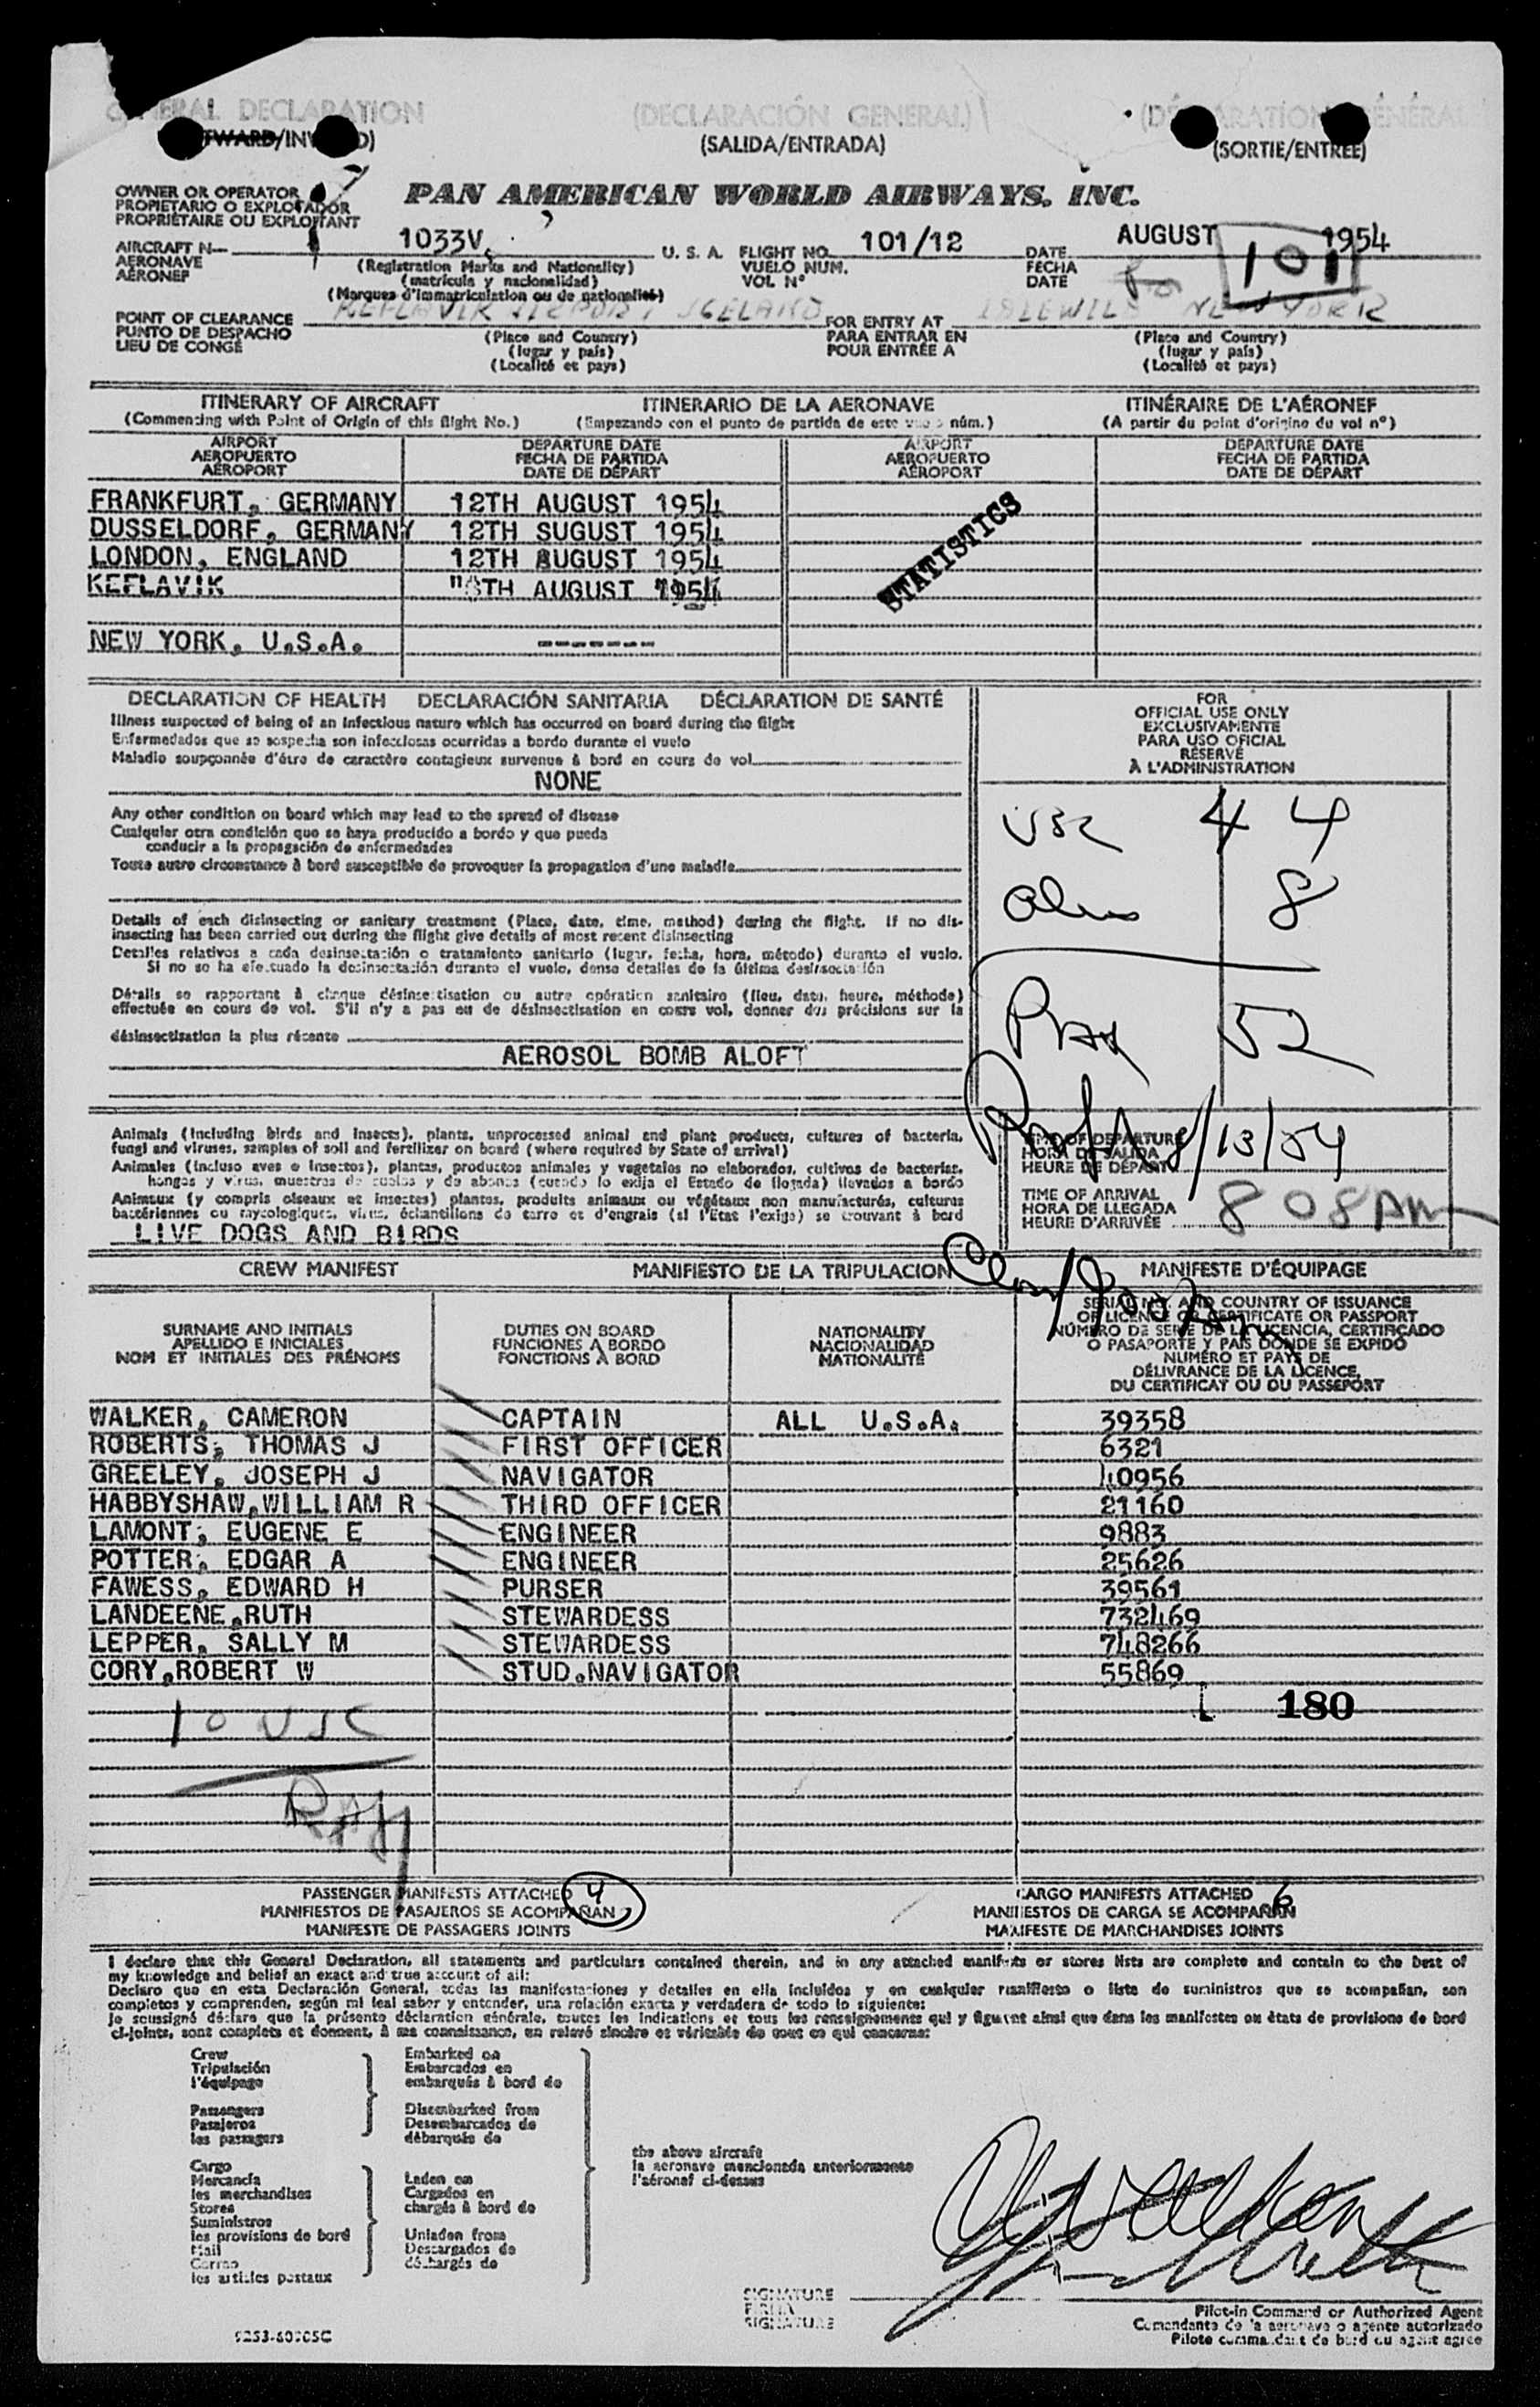 GENERAL DECLARATION (DECLARACIÓN GENERAL) (DÉCLARATION GÉNÉRALE)
(SALIDA/ENTRADA) (SORTIE/ENTRÉE)
OWNER OR OPERATOR
PROPIETARIO O EXPLOTADOR
PROPRIÉTAIRE OU EXPLOITANT
PAN AMERICAN WORLD AIRWAYS, INC.
AIRCRAFT N— 1033V U. S. A. FLIGHT NO. 101/12 DATE AUGUST 1954
AERONAVE VUELO NUM. FECHA
AÉRONEF VOL Nº DATE
101
(Registration Marks and Nationality)
(matrícula y nacionalidad)
(Marques d'immatriculation ou de nationalité)
POINT OF CLEARANCE KEFLAVIK AIRPORT ICELAND FOR ENTRY AT IDLEWILD NEW YORK
PUNTO DE DESPACHO PARA ENTRAR EN
LIEU DE CONGÉ POUR ENTRÉE A
(Place and Country) (Place and Country)
(lugar y país) (lugar y país)
(Localité et pays) (Localité et pays)
ITINERARY OF AIRCRAFT ITINERARIO DE LA AERONAVE ITINÉRAIRE DE L'AÉRONEF
(Commencing with Point of Origin of this flight No.) (Empezando con el punto de partida de este vuelo núm.) (A partir du point d'origine du vol nº)
AIRPORT DEPARTURE DATE AIRPORT DEPARTURE DATE
AEROPUERTO FECHA DE PARTIDA AEROPUERTO FECHA DE PARTIDA
AÉROPORT DATE DE DÉPART AÉROPORT DATE DE DÉPART
FRANKFURT, GERMANY 12TH AUGUST 1954
DUSSELDORF, GERMANY 12TH SUGUST 1954
LONDON, ENGLAND 12TH AUGUST 1954
KEFLAVIK TH AUGUST 1954
STATISTICS
NEW YORK, U.S.A. ------
DECLARATION OF HEALTH DECLARACIÓN SANITARIA DÉCLARATION DE SANTÉ
Illness suspected of being of an infectious nature which has occurred on board during the flight
Enfermedades que se sospecha son infecciosas ocurridas a bordo durante el vuelo
Maladie soupçonnée d'être de caractère contagieux survenue à bord en cours de vol
NONE
Any other condition on board which may lead to the spread of disease
Cualquier otra condición que se haya producido a bordo y que pueda
conducir a la propagación de enfermedades
Toute autre circonstance à bord susceptible de provoquer la propagation d'une maladie
Details of each disinsecting or sanitary treatment (Place, date, time, method) during the flight. If no dis-
insecting has been carried out during the flight give details of most recent disinsecting
Detalles relativos a cada desinsectación o tratamiento sanitario (lugar, fecha, hora, método) durante el vuelo.
Si no se ha efectuado la desinsectación durante el vuelo, dense detalles de la última desinsectación
Détails se rapportant à chaque désinsectisation ou autre opération sanitaire (lieu, date, heure, méthode)
effectuée en cours de vol. S'il n'y a pas eu de désinsectisation en cours vol, donner des précisions sur la
désinsectisation la plus récente
AEROSOL BOMB ALOFT
FOR
OFFICIAL USE ONLY
EXCLUSIVAMENTE
PARA USO OFICIAL
RÉSERVÉ
À L'ADMINISTRATION
USC 44
Alien 8
Pax 52
8/13/54
Animals (including birds and insects), plants, unprocessed animal and plant products, cultures of bacteria,
fungi and viruses, samples of soil and fertilizer on board (where required by State of arrival)
Animales (incluso aves e insectos), plantas, productos animales y vegetales no elaborados, cultivos de bacterias,
hongos y virus, muestras de suelos y de abonos (cuando lo exija el Estado de llegada) llevados a bordo
Animaux (y compris oiseaux et insectes) plantes, produits animaux ou végétaux non manufacturés, cultures
bactériennes ou mycologiques, virus, échantillons de terre et d'engrais (si l'État l'exige) se trouvant à bord
LIVE DOGS AND BIRDS
TIME OF DEPARTURE
HORA DE SALIDA
HEURE DE DÉPART
TIME OF ARRIVAL
HORA DE LLEGADA
HEURE D'ARRIVÉE 8 08 AM
CREW MANIFEST MANIFIESTO DE LA TRIPULACION MANIFESTE D'ÉQUIPAGE
SURNAME AND INITIALS
APELLIDO E INICIALES
NOM ET INITIALES DES PRÉNOMS
DUTIES ON BOARD
FUNCIONES A BORDO
FONCTIONS À BORD
NATIONALITY
NACIONALIDAD
NATIONALITÉ
SERIAL NO. AND COUNTRY OF ISSUANCE
OF LICENCE OR CERTIFICATE OR PASSPORT
NÚMERO DE SERIE DE LA LICENCIA, CERTIFICADO
O PASAPORTE Y PAÍS DONDE SE EXPIDÓ
NUMÉRO ET PAYS DE
DÉLIVRANCE DE LA LICENCE,
DU CERTIFICAT OU DU PASSEPORT
WALKER, CAMERON CAPTAIN ALL U.S.A. 39358
ROBERTS, THOMAS J FIRST OFFICER 6321
GREELEY, JOSEPH J NAVIGATOR 40956
HABBYSHAW,WILLIAM R THIRD OFFICER 21160
LAMONT, EUGENE E ENGINEER 9883
POTTER, EDGAR A ENGINEER 25626
FAWESS, EDWARD H PURSER 39561
LANDEENE,RUTH STEWARDESS 732469
LEPPER, SALLY M STEWARDESS 748266
CORY,ROBERT W STUD.NAVIGATOR 55869
180
10 USC
PASSENGER MANIFESTS ATTACHED 4 CARGO MANIFESTS ATTACHED 6
MANIFIESTOS DE PASAJEROS SE ACOMPAÑAN MANIFIESTOS DE CARGA SE ACOMPAÑAN
MANIFESTE DE PASSAGERS JOINTS MANIFESTE DE MARCHANDISES JOINTS
I declare that this General Declaration, all statements and particulars contained therein, and in any attached manifests or stores lists are complete and contain to the best of
my knowledge and belief an exact and true account of all:
Declaro que en esta Declaración General, todas las manifestaciones y detalles en ella incluidos y en cualquier manifiesto o lista de suministros que se acompañan, son
completos y comprenden, según mi leal saber y entender, una relación exacta y verdadera de todo lo siguiente:
Je soussigné déclare que la présente déclaration générale, toutes les indications et tous les renseignements qui y figurent ainsi que dans les manifestes ou états de provisions de bord
ci-joints, sont complets et donnent, à ma connaissance, un relevé sincère et véritable de tout ce qui concerne:
Crew Embarked on
Tripulación Embarcados en
l'équipage embarqués à bord de
Passengers Disembarked from
Pasajeros Desembarcados de
les passagers débarqués de
the above aircraft
la aeronave mencionada anteriormente
l'aéronef ci-dessus
Cargo
Mercancía Laden on
les merchandises Cargados en
Stores chargés à bord de
Suministros
les provisions de bord Unladen from
Mail Descargados de
Correo déchargés de
les articles postaux
SIGNATURE
FIRMA
SIGNATURE
Pilot-in Command or Authorized Agent
Comandante de la aeronave o agente autorizado
Pilote commandant de bord ou agent agréé